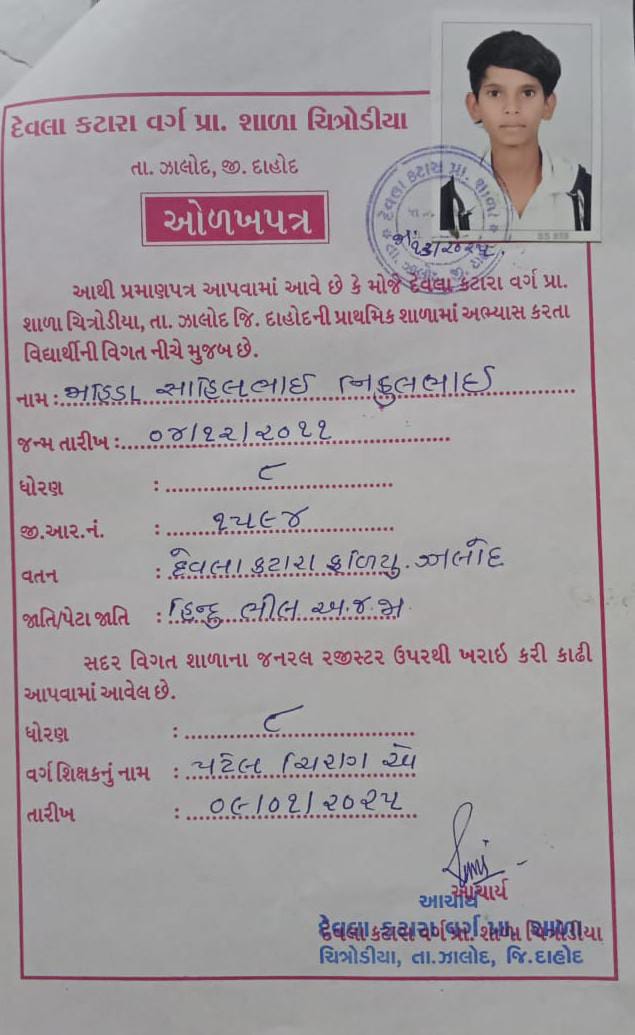 દેવલા કટારા વર્ગ પ્રા. શાળા ચિત્રોડીયા
તા. ઝાલોદ, જી. દાહોદ
ઓળખપત્ર
આથી પ્રમાણપત્ર આપવામાં આવે છે કે મોજે દેવલા કટારા વર્ગ પ્રા.
શાળા ચિત્રોડીયા, તા. ઝાલોદ જિ. દાહોદની પ્રાથમિક શાળામાં અભ્યાસ કરતા
વિદ્યાર્થીની વિગત નીચે મુજબ છે.
નામ : સાહિલભાઈ
જન્મ તારીખ : ૦૪/૧૨/૨૦૧૧
ધોરણ : ૮
જી.આર.નં. : ૧૫૯૪
વતન : દેવલા કટારા ફળિયુ. ઝાલોદ
જાતિ/પેટા જાતિ : હિન્દુ ભીલ અ.જ.જા.
સદર વિગત શાળાના જનરલ રજીસ્ટર ઉપરથી ખરાઇ કરી કાઢી
આપવામાં આવેલ છે.
ધોરણ : ૮
વર્ગ શિક્ષકનું નામ : પટેલ ચિરાગ એ
તારીખ : ૦૯/૦૧/૨૦૨૫
આચાર્ય
આચાર્ય
દેવલા કટારા વર્ગ પ્રા. શાળા ચિત્રોડીયા
ચિત્રોડીયા, તા.ઝાલોદ, જિ.દાહોદ